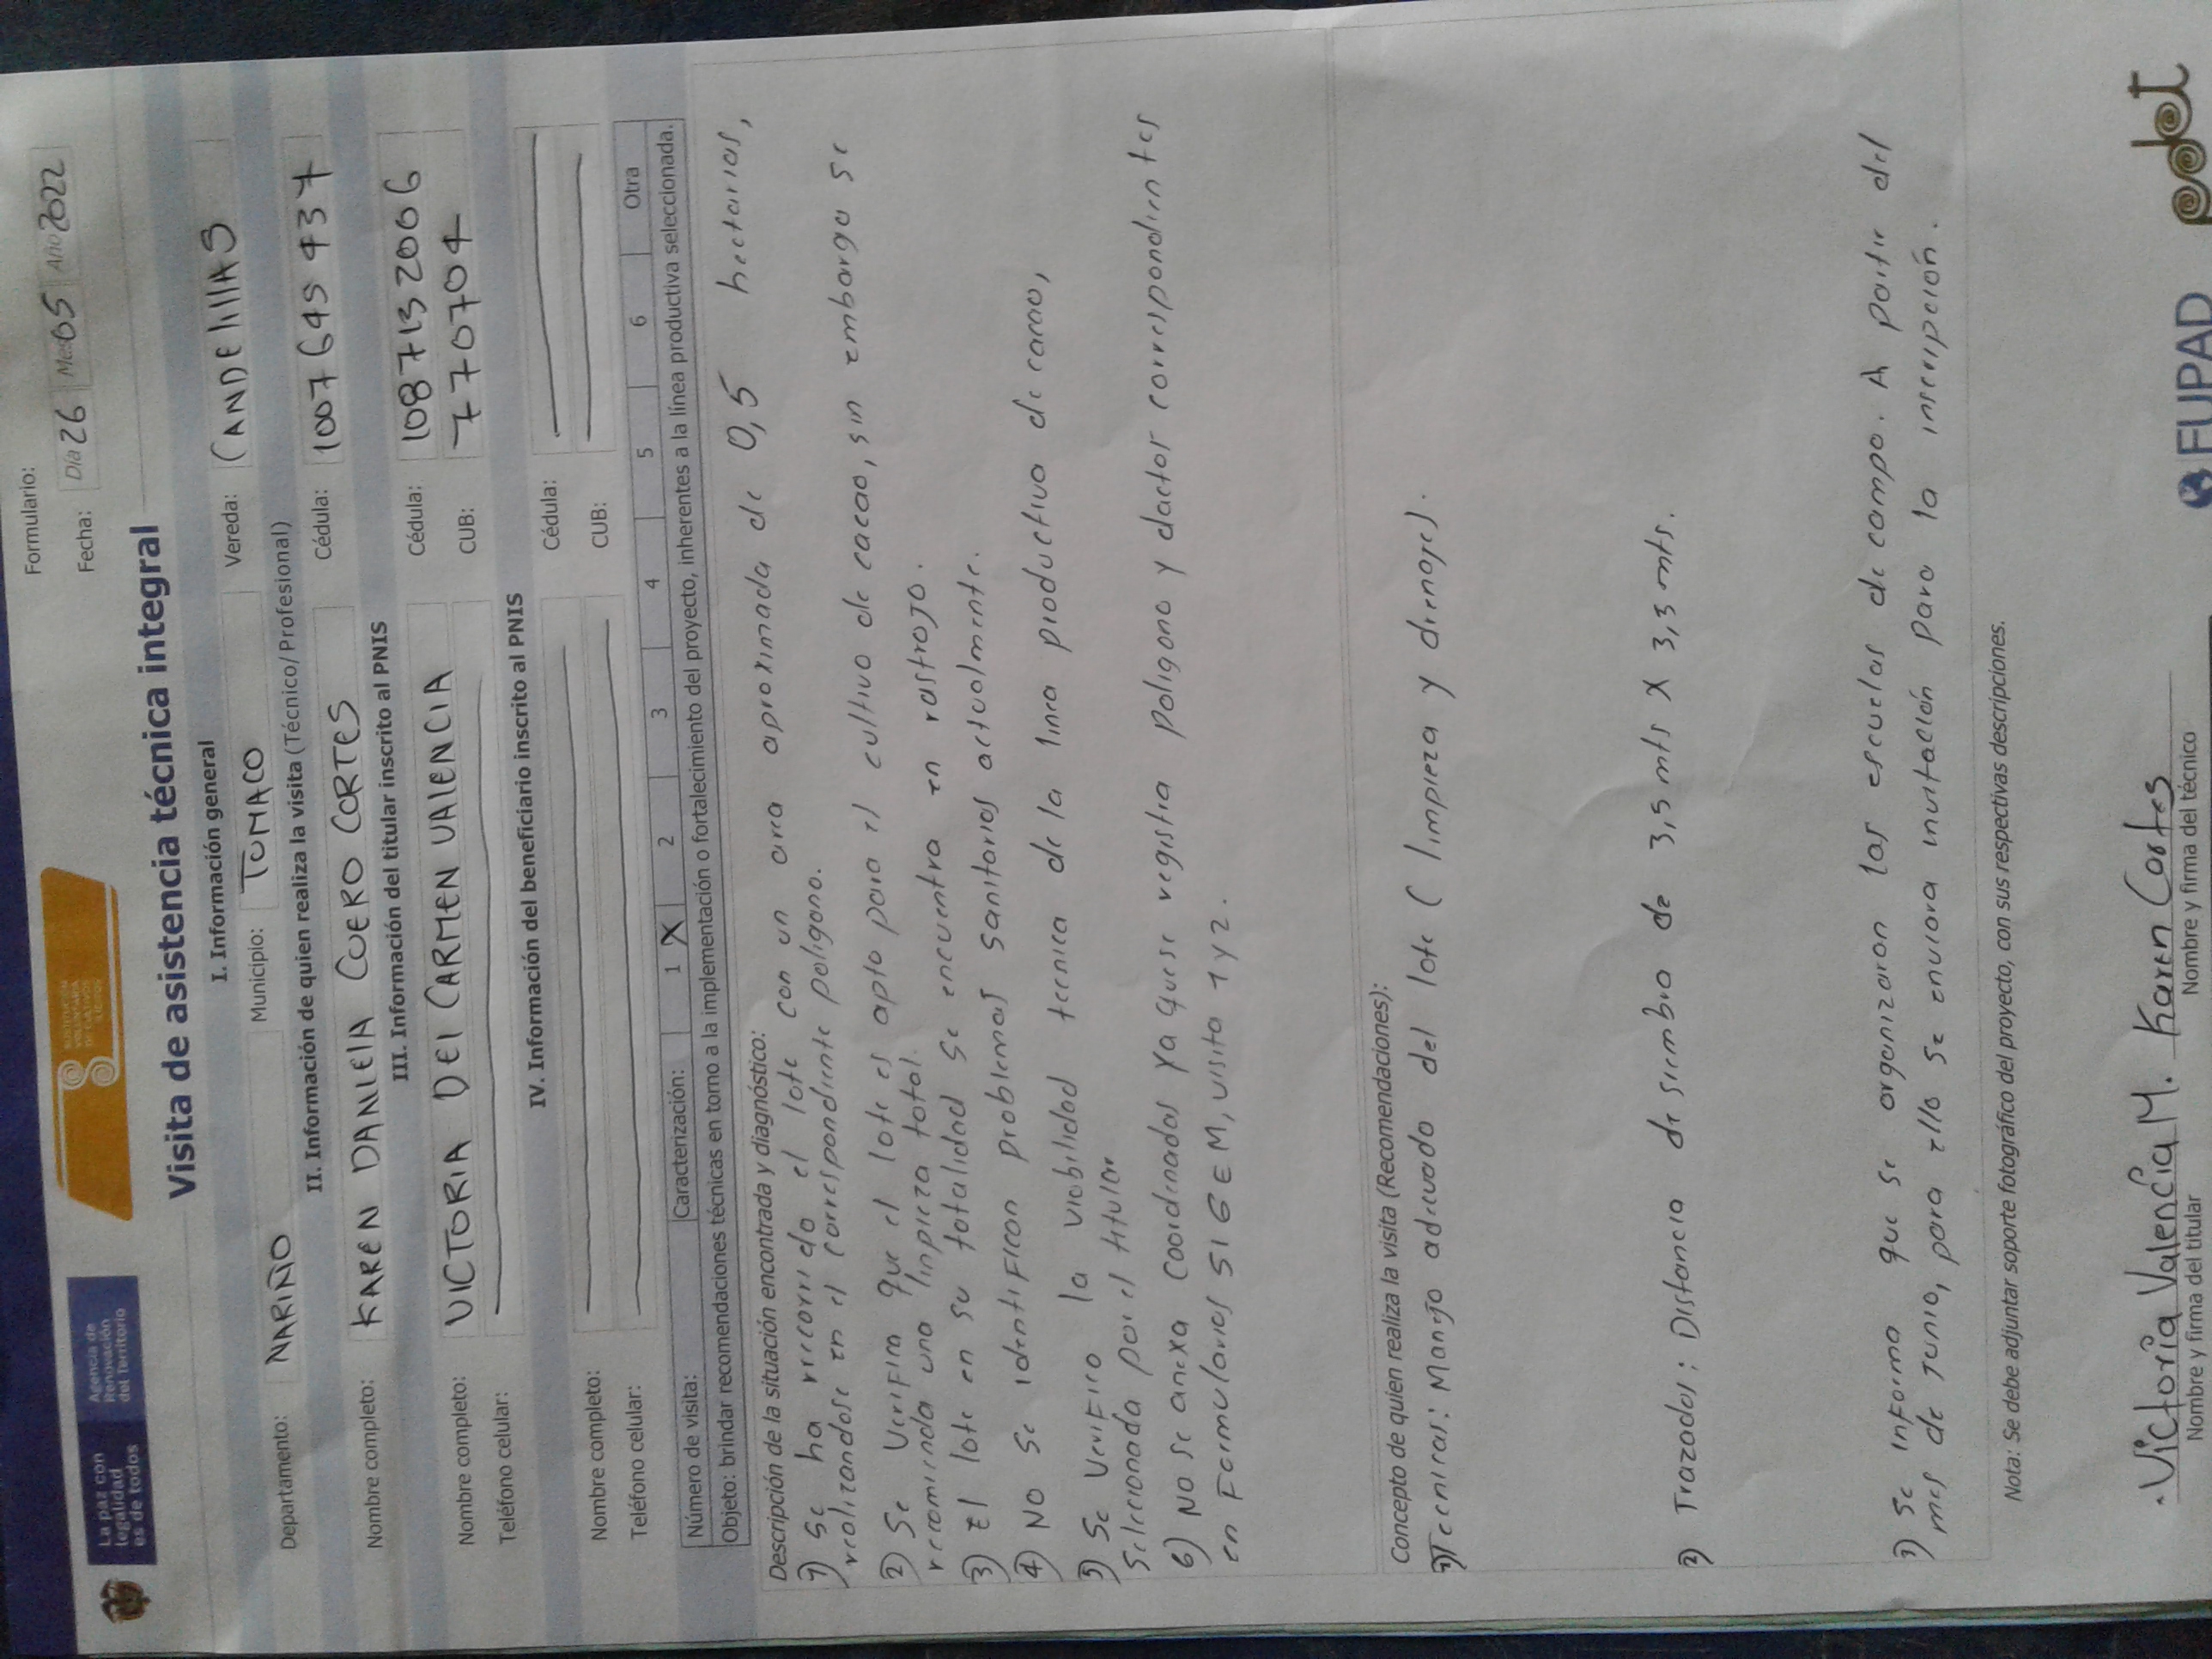 La paz con
legalidad
es de todos
Agencia de
Renovación
del Territorio
SUSTITUCIÓN
VOLUNTARIA
DE CULTIVOS
ILÍCITOS
Formulario:
Fecha: Día 26 Mes 05 Año 2022
Visita de asistencia técnica integral
I. Información general
Departamento: NARIÑO Municipio: TUMACO Vereda: CANDElillAS
II. Información de quien realiza la visita (Técnico/ Profesional)
Nombre completo: KAREN DANIElA CUERO CORTES Cédula: 1007645437
III. Información del titular inscrito al PNIS
Nombre completo: VICTORIA DEl CARMEN VAlENCIA Cédula: 1087132006
Teléfono celular: CUB: 770704
IV. Información del beneficiario inscrito al PNIS
Nombre completo: Cédula:
Teléfono celular: CUB:
Número de visita: Caracterización: 1 X 2 3 4 5 6 Otra
Objeto: brindar recomendaciones técnicas en torno a la implementación o fortalecimiento del proyecto, inherentes a la línea productiva seleccionada.
Descripción de la situación encontrada y diagnóstico:
1) Se ha rrecorrido el lote con un area aproximada de 0,5 hectarias,
realizandose en el correspondiente poligano.
2) Se Verifica que el lote es apto para el cultivo de cacao, sin embargo se
recomienda una limpieza total.
3) El lote en su totalidad se encuentra en rastrojo.
4) No se identifican problemas sanitarios actualmente.
5) Se Verifico la viabilidad tecnica de la linea productiva de cacao,
Seleccionada por el titular
6) No se anexa Coordenadas ya que se registra poligono y dactor correspondientes
en Formularios SIGEM, visita 1 y 2.
Concepto de quien realiza la visita (Recomendaciones):
1) Tecnicas: Manejo adecuado del lote ( limpieza y drenajes).
2) Trazados: Distancia de siembra de 3,5 mts X 3,3 mts.
3) Se informa que se organizaron las escuelas de campo. A partir del
mes de Junio, para ello se enviara invitación para la inscripción.
Nota: Se debe adjuntar soporte fotográfico del proyecto, con sus respectivas descripciones.
Victoria Valencia M. Karen Cortes
Nombre y firma del titular Nombre y firma del técnico
FUPAD pdet